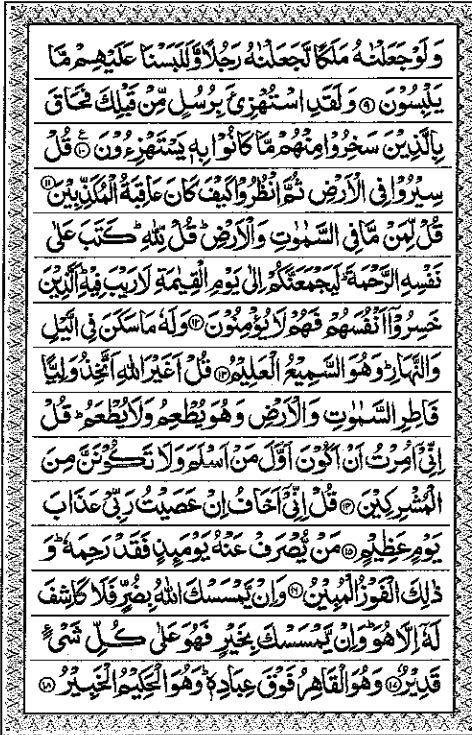 وَلَوْ جَعَلْنٰهُ مَلَكًا لَّجَعَلْنٰهُ رَجُلًا وَّلَلَبَسْنَا عَلَيْهِمْ مَّا
يَلْبِسُوْنَ ﴿۹﴾ وَلَقَدِ اسْتُهْزِئَ بِرُسُلٍ مِّنْ قَبْلِكَ فَحَاقَ
بِالَّذِيْنَ سَخِرُوْا مِنْهُمْ مَّا كَانُوْا بِهٖ يَسْتَهْزِءُوْنَ ﴿۱۰﴾ قُلْ
سِيْرُوْا فِى الْاَرْضِ ثُمَّ انْظُرُوْا كَيْفَ كَانَ عَاقِبَةُ الْمُكَذِّبِيْنَ ﴿۱۱﴾
قُلْ لِّمَنْ مَّا فِى السَّمٰوٰتِ وَالْاَرْضِ ؕ قُلْ لِّلّٰهِ ؕ كَتَبَ عَلٰى
نَفْسِهِ الرَّحْمَةَ ؕ لَيَجْمَعَنَّكُمْ اِلٰى يَوْمِ الْقِيٰمَةِ لَا رَيْبَ فِيْهِ ؕ اَلَّذِيْنَ
خَسِرُوْۤا اَنْفُسَهُمْ فَهُمْ لَا يُؤْمِنُوْنَ ﴿۱۲﴾ وَلَهٗ مَا سَكَنَ فِى الَّيْلِ
وَالنَّهَارِ ؕ وَهُوَ السَّمِيْعُ الْعَلِيْمُ ﴿۱۳﴾ قُلْ اَغَيْرَ اللّٰهِ اَتَّخِذُ وَلِيًّا
فَاطِرِ السَّمٰوٰتِ وَالْاَرْضِ وَهُوَ يُطْعِمُ وَلَا يُطْعَمُ ؕ قُلْ
اِنِّىْۤ اُمِرْتُ اَنْ اَكُوْنَ اَوَّلَ مَنْ اَسْلَمَ وَلَا تَكُوْنَنَّ مِنَ
الْمُشْرِكِيْنَ ﴿۱۴﴾ قُلْ اِنِّىْۤ اَخَافُ اِنْ عَصَيْتُ رَبِّىْ عَذَابَ
يَوْمٍ عَظِيْمٍ ﴿۱۵﴾ مَنْ يُّصْرَفْ عَنْهُ يَوْمَئِذٍ فَقَدْ رَحِمَهٗ ؕ وَ
ذٰلِكَ الْفَوْزُ الْمُبِيْنُ ﴿۱۶﴾ وَاِنْ يَّمْسَسْكَ اللّٰهُ بِضُرٍّ فَلَا كَاشِفَ
لَهٗۤ اِلَّا هُوَ ؕ وَاِنْ يَّمْسَسْكَ بِخَيْرٍ فَهُوَ عَلٰى كُلِّ شَىْءٍ
قَدِيْرٌ ﴿۱۷﴾ وَهُوَ الْقَاهِرُ فَوْقَ عِبَادِهٖ ؕ وَهُوَ الْحَكِيْمُ الْخَبِيْرُ ﴿۱۸﴾